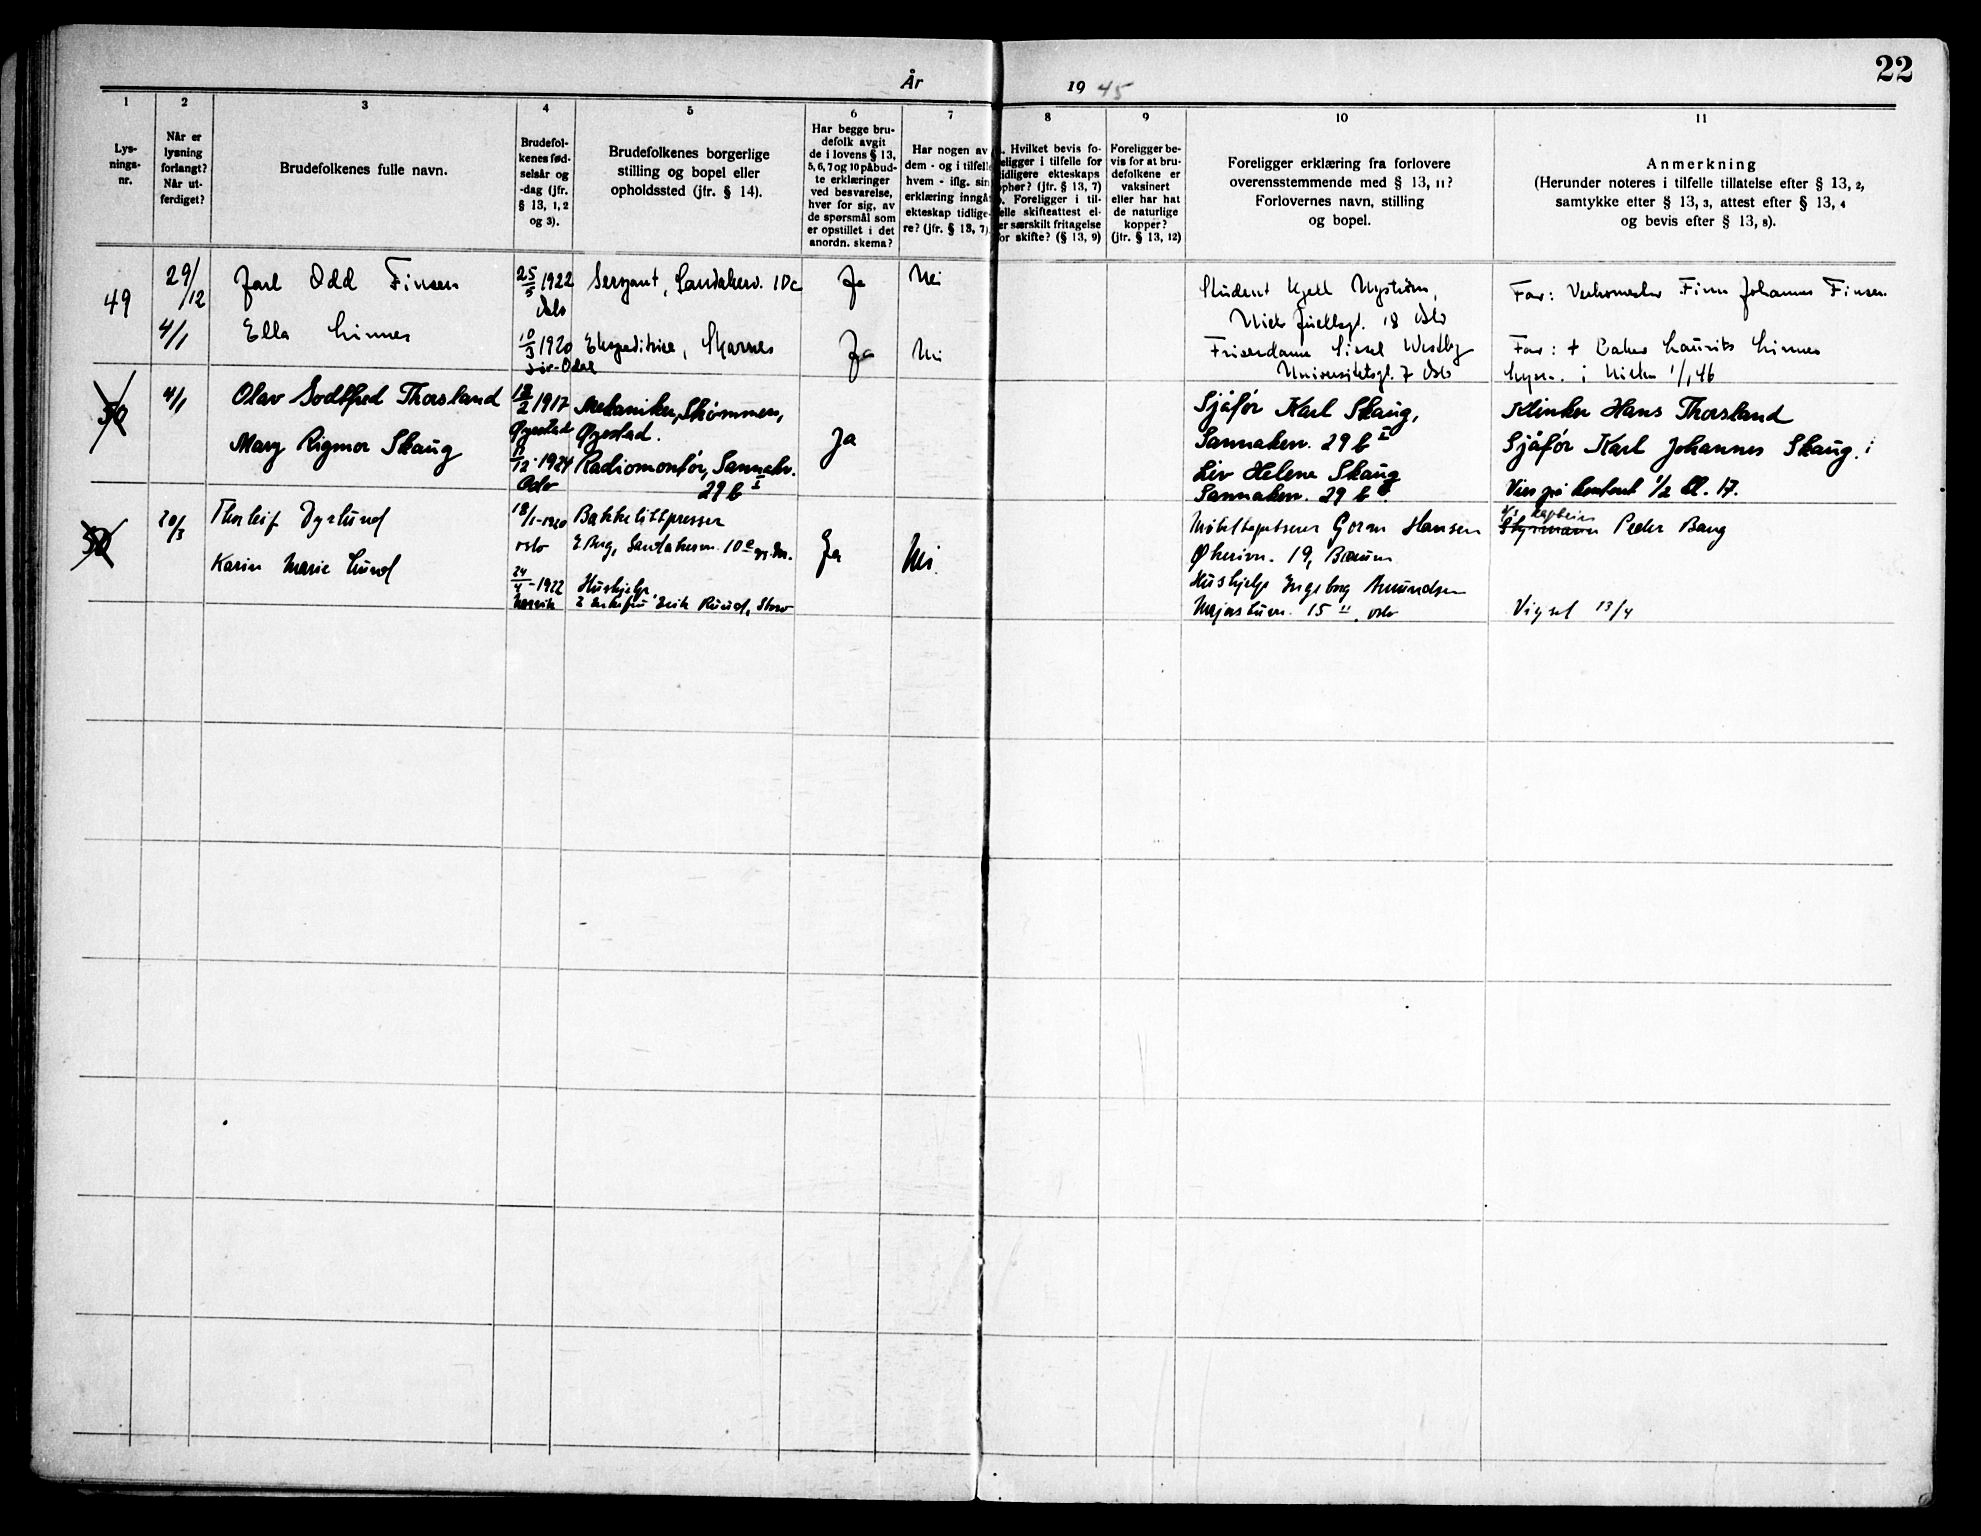 22
År 19 45
1
Lys-
nings-
nr.
2
Når er
lysning
forlangt?
Når ut-
ferdiget?
3
Brudefolkenes fulle navn.
4
Brudefol-
kenes fød-
selsår og
-dag (jfr.
§ 13, 1, 2
og 3).
5
Brudefolkenes borgerlige
stilling og bopel eller
opholdssted (jfr. § 14).
6
Har begge bru-
defolk avgit
de i lovens § 13,
5, 6, 7 og 10 påbud-
te erklæringer
ved besvarelse,
hver for sig, av
de spørsmål som
er opstillet i det
anordn. skema?
7
Har nogen av
dem - og i tilfelle
hvem - iflg. sin
erklæring inngå
ekteskap tidlige-
re? (jfr. § 13, 7)
8
Hvilket bevis fo-
eligger i tilfelle for
idligere ekteskaps
ophør? (jfr. § 13, 7)
Foreligger i til-
elle skifteattest el-
er særskilt fritagelse
for skifte? (§ 13, 9)
9
Foreligger be-
vis for at bru-
defolkene er
vaksinert
eller har hat
de naturlige
kopper?
(jfr. § 13, 12)
10
Foreligger erklæring fra forlovere
overensstemmende med § 13, 11?
Forlovernes navn, stilling
og bopel.
11
Anmerkning
(Herunder noteres i tilfelle tillatelse efter § 13, 2,
samtykke efter § 13, 3, attest efter § 13, 4
og bevis efter § 13, 8).
49
29/12
4/1
Jarl Odd Finsen
25/5 1922
Oslo
Sersjant, Sandakerv. 10c
Ja
Nei
Student Kjell Nystrøm,
Niels Juelsgt. 18 Oslo
Far: Verksmester Finn Johannes Finsen.
Ella Linnes
10/3 1920
Sør-Odal
Ekspeditrise, Skarnes
Ja
Nei
Frisørdame Sissel Westby
Universitetsgt. 7 Oslo
Far: † Baker Laurits Linnes
1/1, 46
50
4/1
Olav Godtfred Thorsland
12/2 1917
Øyestad
Mekaniker, Strømmen,
Øyestad.
Ja
Sjåfør Karl Skaug,
Sannakerv. 29 b I
Klinker Hans Thorsland
Mary Rigmor Skaug
11/12 - 1924
Oslo
Radiomontør, Sannakv.
29 b I
Liv Helene Skaug
Sannakerv. 29 b I.
Sjåfør Karl Johannes Skaug.
Vies på kontoret 1/2 kl. 17.
50
20/3
Thorleif Dyrlund
18/1 - 1920
Oslo
Bakkelittpresser
E. Berg, Sandakerv. 10 e
Ja
Nei.
Møbeltapetserer Gorm Hansen
Økeriv. 19, Bærum
Styrmann Peder Bang
Karin Marie Lund
24/4 - 1922
Narvik
Hushjelp.
Hushjelp Ingeborg Amundsen
Majorstuv. 15 II, Oslo
Vigsel 13/4